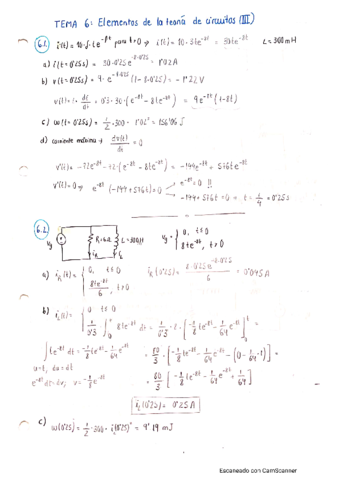 TEMA 6: Elementos de la teoría de circuitos (III)
6.1. i(t) = 10·J·t·e^-8t para t>0 ⇒ i(t) = 10·3te^-8t = 30te^-8t L = 300 mH
a) i(t=0'25s) = 30·0'25e^-8·0'25 = 1'02A
b) v(t=0'25s) = 9·e^-8·0'25 (1-8·0'25) = -1'22V
v(t) = L· di/dt = 0'3·30·(e^-8t - 8te^-8t) = 9e^-8t (1-8t)
c) w(t=0'25s) = 1/2·300·1'02² = 156'06 J
d) corriente máxima → dv(t)/dt = 0
v'(t) = -72e^-8t - 72·(e^-8t - 8te^-8t) = -144e^-8t + 576te^-8t
v'(t)=0 ⇒ e^-8t (-144 + 576t) = 0 e^-8t=0 !!
-144+576t = 0 → t = 1/4 = 0'25s
6.2. R=6Ω L=300mH vg = { 0, t≤0
8te^-8t, t>0
vg iR iL
a) iR(t) = { 0, t≤0 iR(0'25s) = 8·0'25e^-8·0'25 / 6 = 0'045A
8te^-8t / 6, t>0
b) iL(t) = { 0 t≤0
1/0'3 ∫ 8te^-8t dt = 1/0'3 · 8 · [-1/8 te^-8t - 1/64 e^-8t]
∫te^-8t dt = -1/8 te^-8t - 1/64 e^-8t = 80/3 · [-1/8 te^-8t - 1/64 e^-8t - (0 - 1/64·1)] =
u=t, du=dt
e^-8t dt=dv; v=-1/8 e^-8t = 80/3 [-1/8 te^-8t - 1/64 e^-8t + 1/64]
iL(0'25) = 0'25A
c) w(0'25) = 1/2·300·i(0'25)² = 9'19 mJ
Escaneado con CamScanner